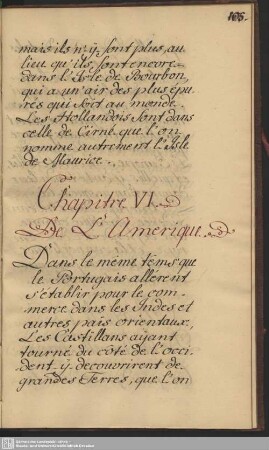 105.
mais ils n'y sont plus, au
lieu qu'ils sont encore
dans l'Isle de Bourbon,
qui a un air des plus épu
rés qui soit au monde.
Les Hollandois sont dans
celle de Cirné que l'on
nomme autrement l'Isle
de Maurice.
Chapitre VI.
De L'Amerique.
Dans le meme tems que
le Portugais allerent
s'établir pour le com-
merce dans les Indes et
autres pais orientaux,
Les Castillans aÿant
tourné du côté de l'occi-
dent y decouvrirent de
grandes Terres, que l'on